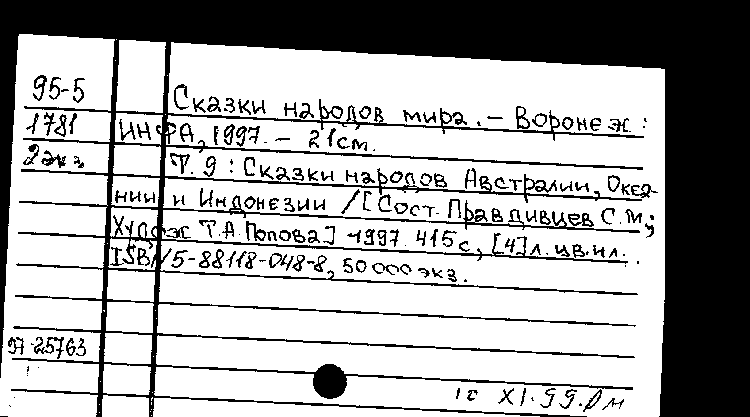 95-5 Сказки народов мира. – Воронеж:
1781 ИНФА, 1997. – 21см.
2экз Т. 9: Сказки народов Австралии, Океа-
нии и Индонезии / [Сост. Правдивцев С.М.;
Худож Т.А. Попова] -1997. 415 с, [4] л. цв. ил. .
ISBN 5-88118-048-8, 50000 экз.
97-25763
XI.99.